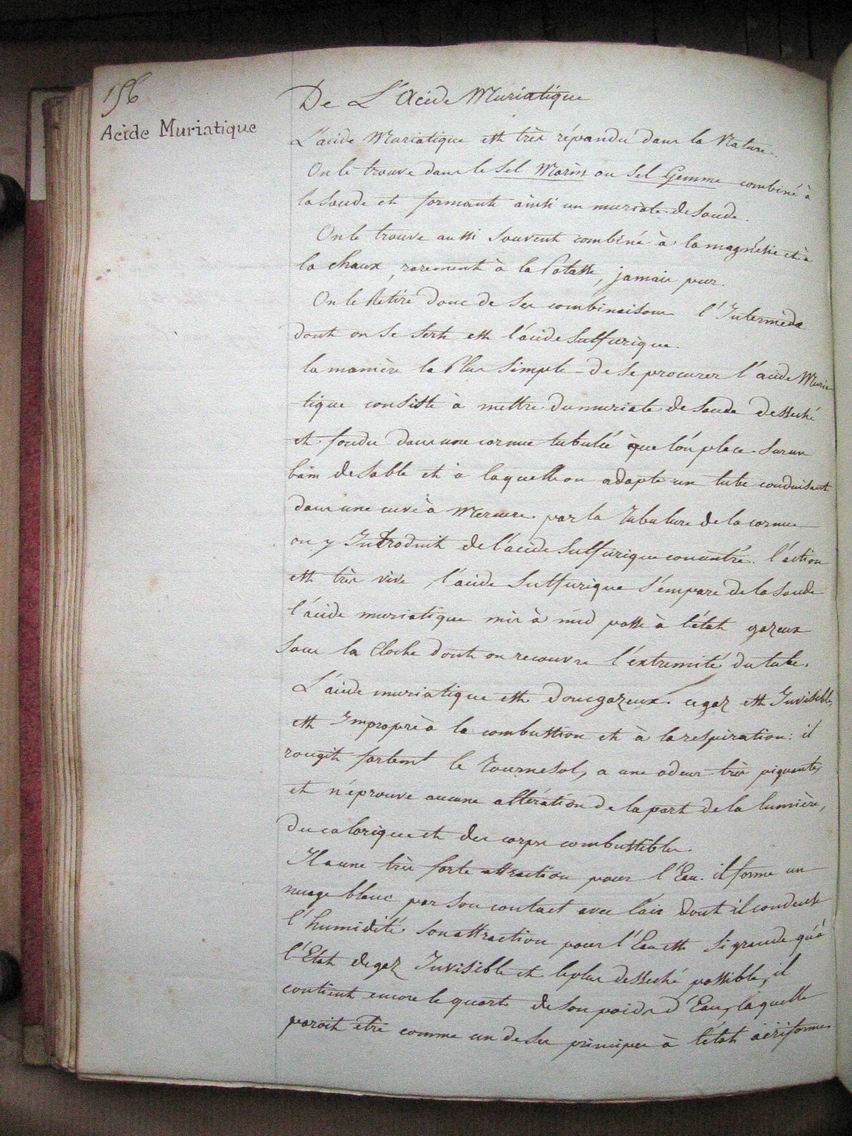 156
Acide Muriatique
De L'Acide Muriatique
L'acide Muriatique est très répandu dans la Nature.
On le trouve dans le Sel Marin ou Sel Gemme combiné à
la soude et formant ainsi un muriate de soude.
On le trouve aussi souvent combiné à la magnésie et à
la chaux, rarement à la Potasse, jamais pur.
On le Retire donc de ses combinaisons l'Intermède
dont on se sert est l'acide sulfurique.
la manière la Plus Simple de se procurer l'acide Muria
tique consiste à mettre du muriate de soude desséché
et fondu dans une cornue tubulée que l'on place sur un
bain de sable et à laquelle on adapte un tube conduisant
dans une cuve à Mercure. par la tubulure de la cornue
on y Introduit de l'acide Sulfurique concentré. l'action
est très vive l'acide Sulfurique s'empare de la soude
l'acide muriatique mis à nud passe à l'état gazeux
sous la Cloche dont on recouvre l'extremité du tube.
L'acide muriatique est donc gazeux. ce gaz est Invisible,
est Impropre à la combustion et à la respiration: il
rougit fortemt le Tournesol, a une odeur très piquante,
et n'éprouve aucune altération de la part de la lumière,
du calorique et des corps combustibles.
Il a une très forte attraction pour l'Eau. il forme un
nuage blanc par son contact avec l'air dont il condense
l'humidité. son attraction pour l'Eau est si grande qu'à
l'Etat de gaz Invisible et le plus desséché possible, il
contient encore le quart de son poids d'Eau, laquelle
paroit etre comme un de ses principes à l'état aëriforme